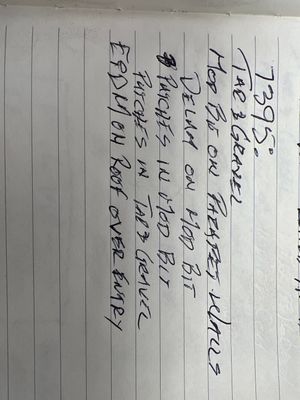 7395:
TAR & GRAVEL
MOD BIT ON PARAPET WALLS
DELAM ON MOD BIT
PATCHES IN MOD BIT
PATCHES IN TAR & GRAVEL
EPDM ON ROOF OVER ENTRY